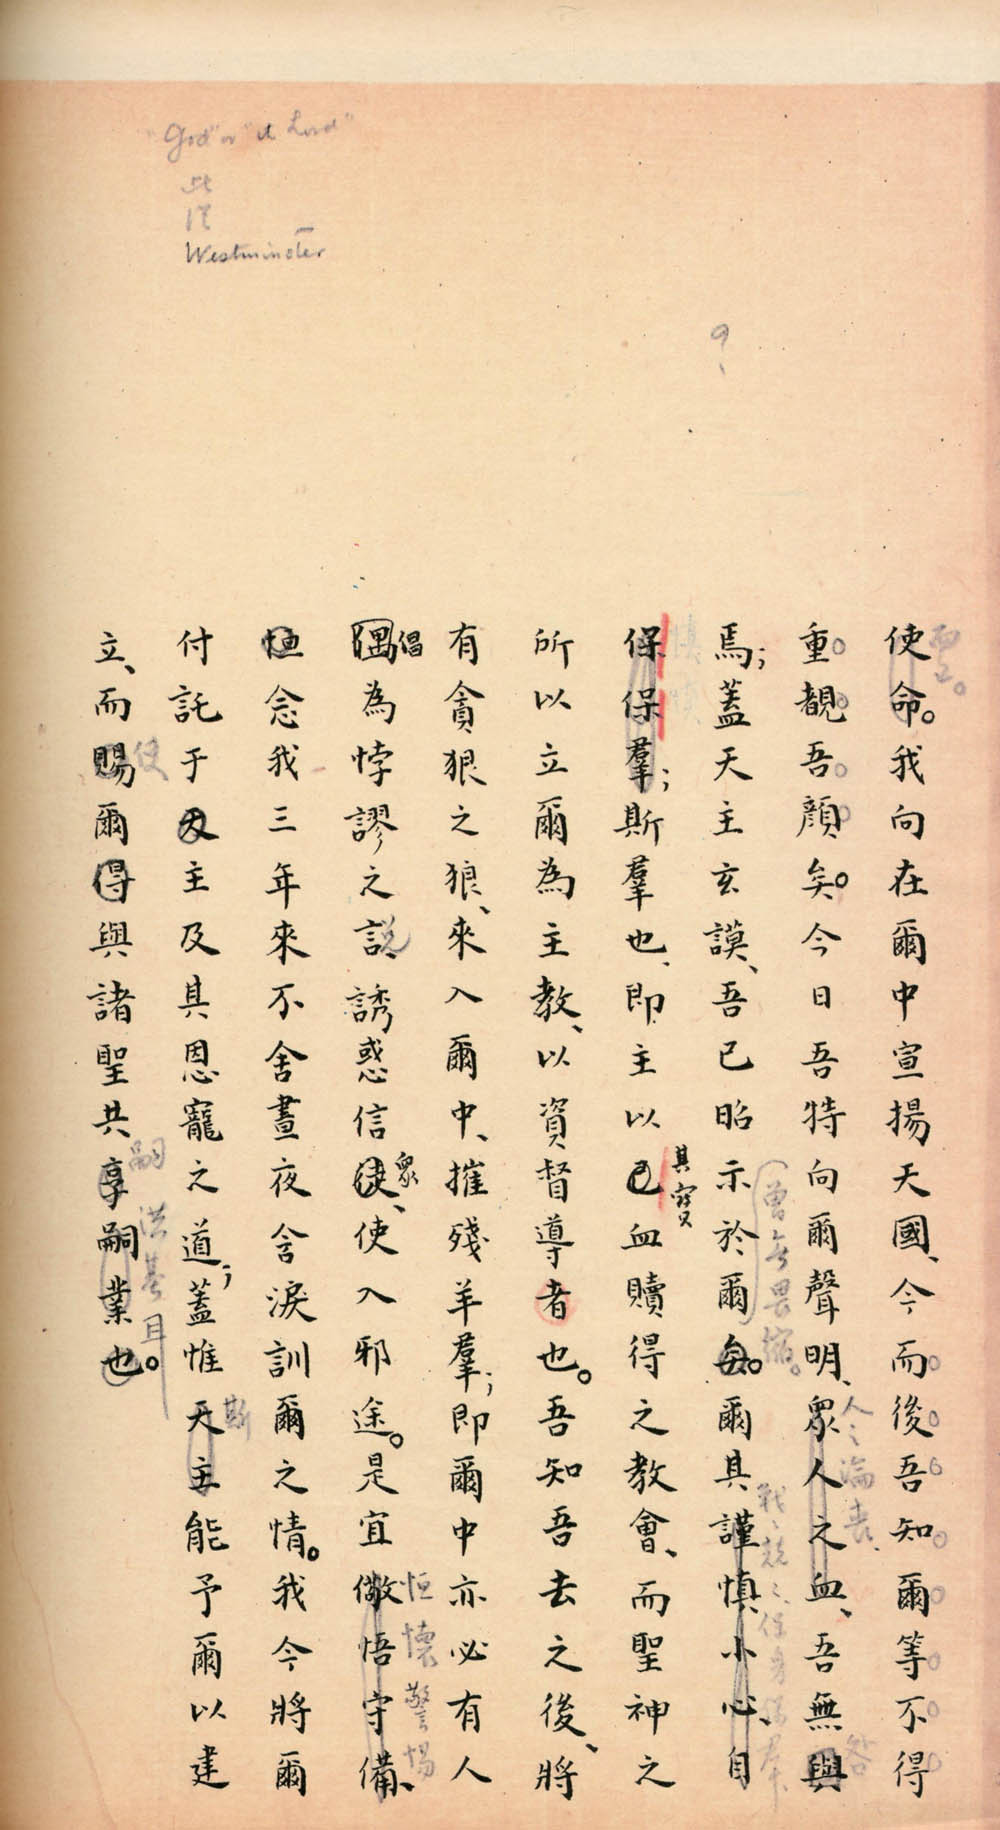 "God" or "the Lord"
此
從
Westminster
使命。我向在爾中宣揚天國、今而後吾知爾等不得
重覩吾顏矣。今日吾特向爾聲明、眾人之血、吾無與
人之淪喪、
咎
焉；蓋天主玄謨、吾已昭示於爾矣。爾其謹慎小心、自
曾無畏縮。
戰戰兢兢、保身保羣、
保保羣；斯羣也、即主以己血贖得之教會、而聖神之
其寶
所以立爾為主教、以資督導者也。吾知吾去之後、將
有貪狠之狼、來入爾中、摧殘羊羣；即爾中亦必有人
倡
偶為悖謬之說、誘惑信徒、使入邪途。是宜儆悟守備、
說
眾
恒懷警惕
恒念我三年來不舍晝夜含淚訓爾之情。我今將爾
付託于天主及其恩寵之道；蓋惟天主能予爾以建
斯
立、而賜爾得與諸聖共享嗣業也。
使
嗣洪基耳